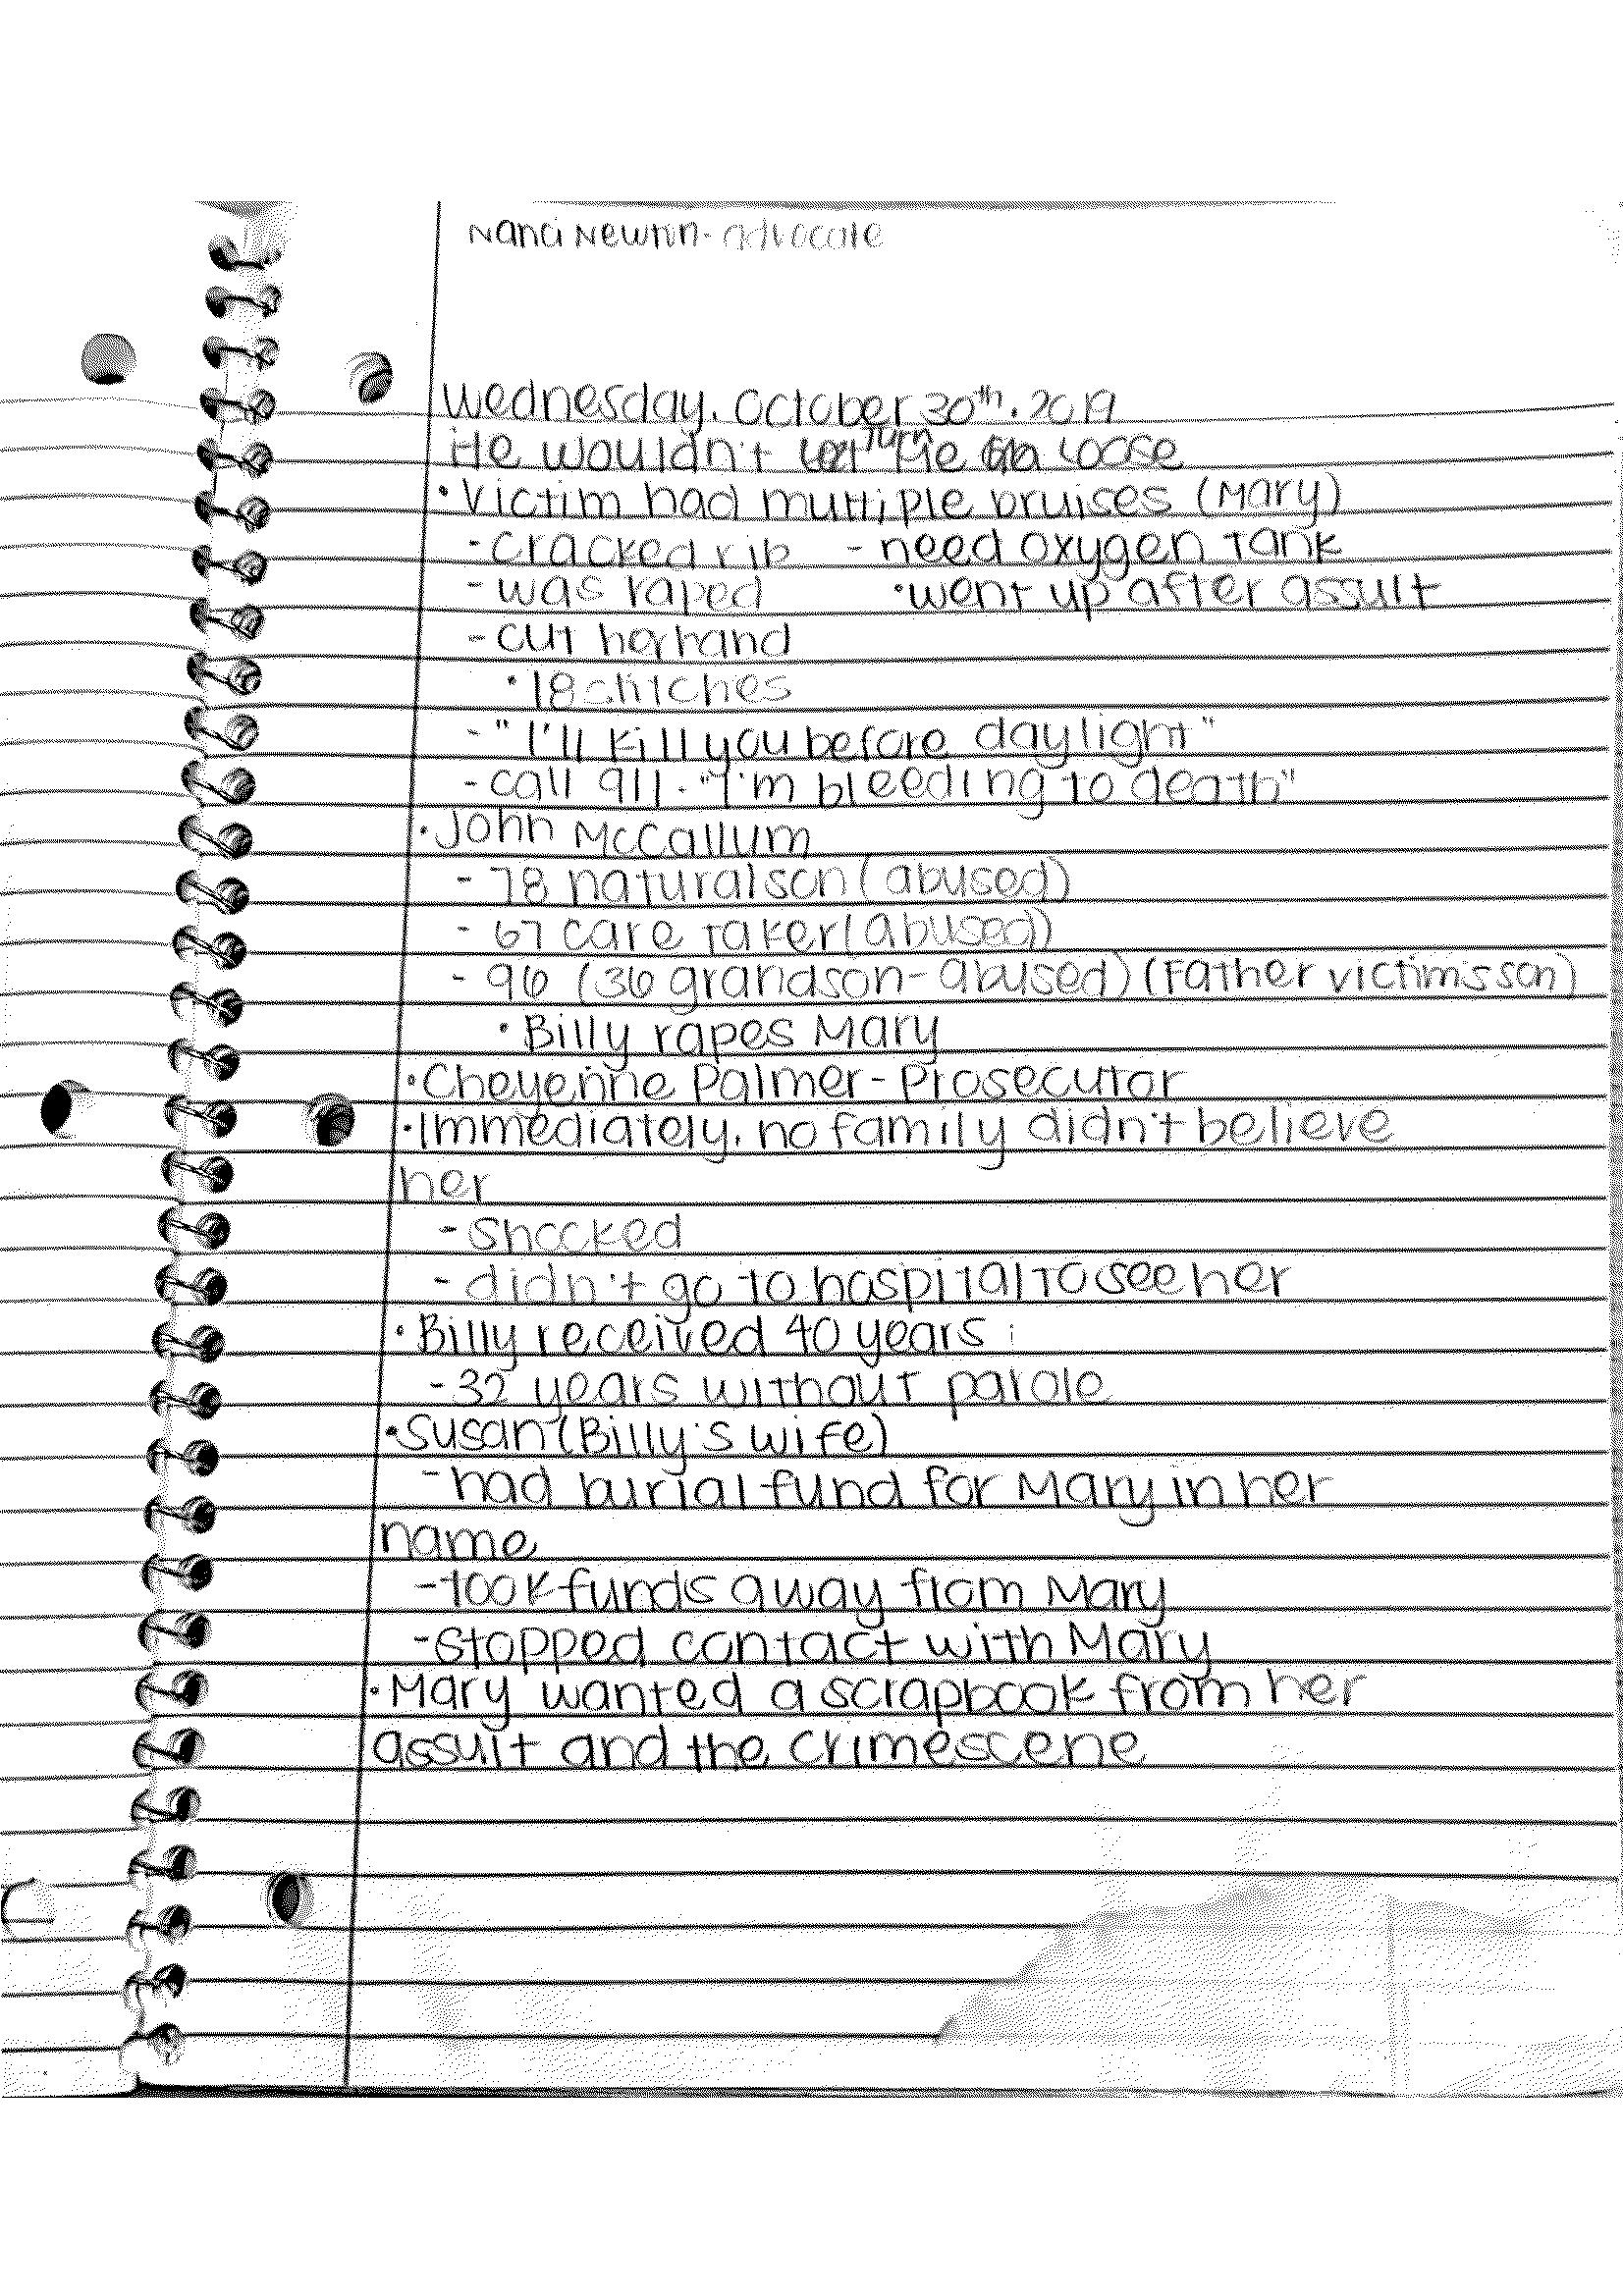 Nanci Newton - advocate
Wednesday, October 30th, 2019
He wouldn't Turn me loose
• Victim had multiple bruises (Mary)
- cracked rib - need oxygen tank
- was raped • went up after assult
- cut her hand
• 18 stitches
- "I'll kill you before daylight"
- call 911 - "I'm bleeding to death"
• John McCallum
- 78 natural son (abused)
- 67 care taker (abused)
- 96 (36 grandson - abused) (Father victim's son)
• Billy rapes Mary
• Cheyenne Palmer - Prosecutor
• Immediately, no family didn't believe
her
- shocked
- didn't go to hospital to see her
• Billy received 40 years
- 32 years without parole
• Susan (Billy's wife)
- had burial fund for Mary in her
name
- took funds away from Mary
- stopped contact with Mary
• Mary wanted a scrapbook from her
assult and the crimescene